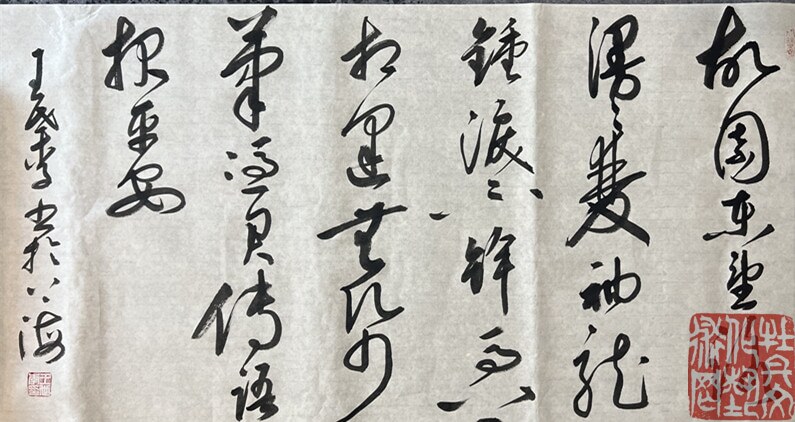 故園東望
漫漫雙袖龍
鍾淚不乾馬上
相逢無紙
筆憑君傳語
報平安
書於上海